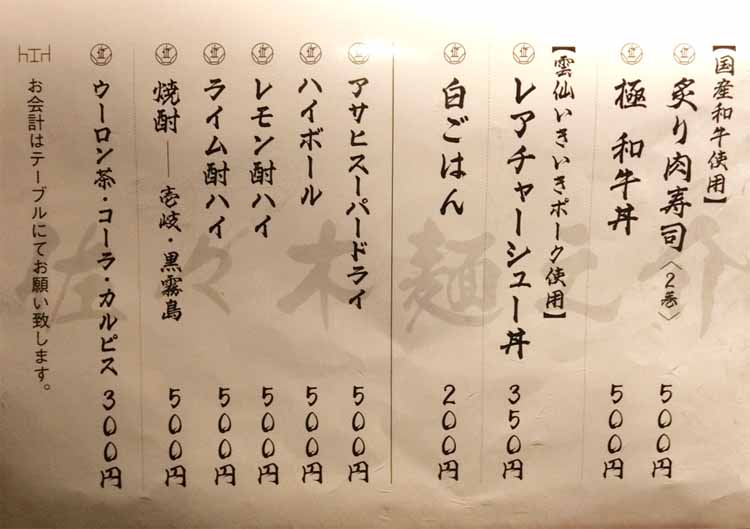 【国産和牛使用】
炙り肉寿司〈2巻〉 500円
極 和牛丼 500円
【雲仙いきいきポーク使用】
レアチャーシュー丼 350円
白ごはん 200円
アサヒスーパードライ 500円
ハイボール 500円
レモン酎ハイ 500円
ライム酎ハイ 500円
焼酎 ── 壱岐・黒霧島 500円
ウーロン茶・コーラ・カルピス 300円
お会計はテーブルにてお願い致します。
佐々木麺之介